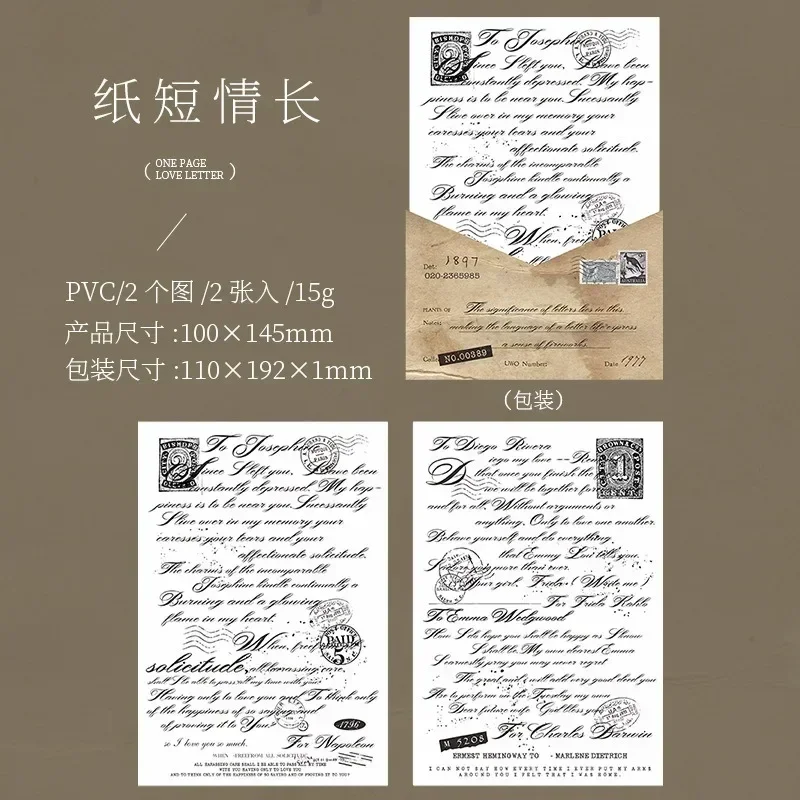 纸短情长
( ONE PAGE
LOVE LETTER )
PVC/2 个图 /2 张入 /15g
产品尺寸 :100×145mm
包装尺寸 :110×192×1mm
BISHOP
To Josephine
Since I left you, I have been
constantly depressed. My hap-
piness is to be near you. Sucessantly
I live over in my memory your
caresses your tears and your
affectionate solicitude.
The charms of the incomparable
Josephine kindle continually a
Burning and a glowing
flame in my heart.
When, free
PAID
Det: 1897
020-2365985
AUSTRALIA
PLANTS OF The significance of letters lies in this.
Notes: making the language of a letter life express
a sense of fireworks.
Colle NO.00389 UWO Number: Date 1977
(包装)
BISHOP
To Josephine
Since I left you, I have been
constantly depressed. My hap-
piness is to be near you. Sucessantly
I live over in my memory your
caresses your tears and your
affectionate solicitude.
The charms of the incomparable
Josephine kindle continually a
Burning and a glowing
flame in my heart.
When, free
PAID
5
solicitude, all harassing care,
shall I be able to pass all my time with you?
Having only to love you and To think only
of the happiness of so saying and
of proving it to You.
1796
so I love you so much. For Napoleon
WHEN FREE FROM ALL SOLICITUDE,
ALL HARASSING CARE SHALL I BE ABLE TO PASS ALL MY TIME
WITH YOU HAVING ONLY TO LOVE YOU
AND TO THINK ONLY OF THE HAPPINESS OF SO SAYING AND OF PROVING IT TO YOU?
To Diego Rivera
Diego my love ---
that once you finish the
we will be together for
and for all. Without arguments or
anything. Only to love one another.
Behave yourself and do everything
that Emmy Lou tells you.
I adore you more than ever.
Your girl, Frida (Write me)
For Frida Kahlo
To Emma Wedgwood
How I do hope you shall be happy as I know
I shall be. My own dearest Emma
I earnestly pray you may never regret
The great and I will add very good deed you
Are to perform on the Tuesday my own
Dear future wife God bless you
For Charles Darwin
M 5208
ERNEST HEMINGWAY TO -MARLENE DIETRICH
I CAN NOT SAY HOW EVERY TIME I EVER PUT MY ARMS
AROUND YOU I FELT THAT I WAS HOME.